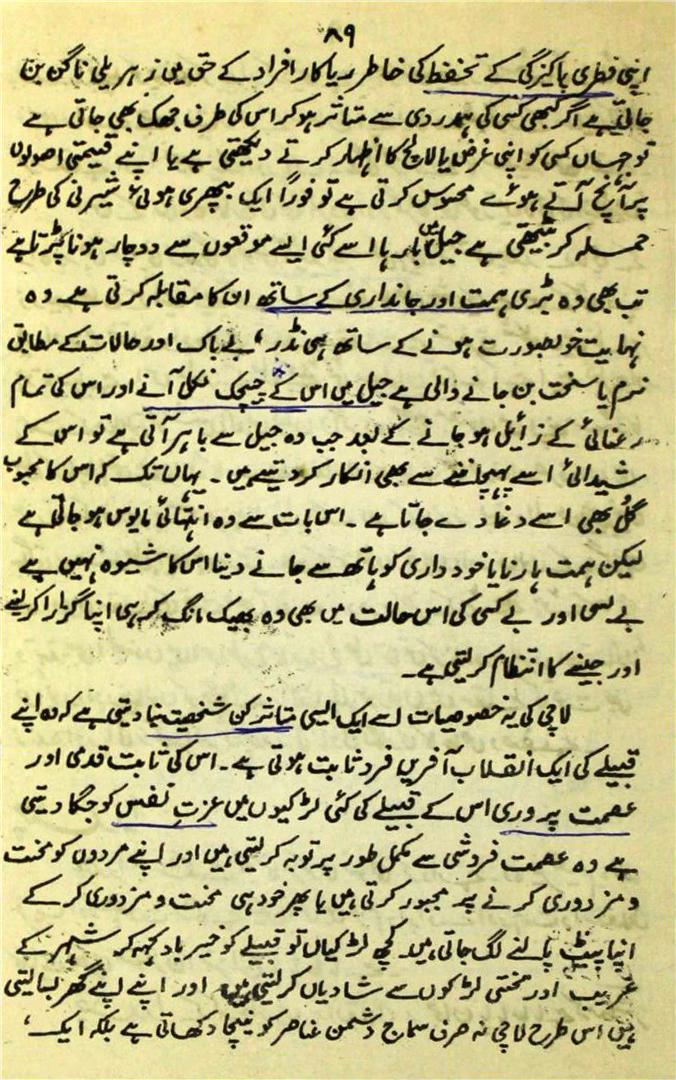 ۸۹
اپنی فطری پاکیزگی کے تحفظ کی خاطر ریاکار افراد کے حق میں زہریلی ناگن بن
جاتی ہے اگر کبھی کسی کی ہمدردی سے متاثر ہوکر اس کی طرف جھک بھی جاتی ہے
تو جہاں کسی کو اپنی غرض یا لالچ کا اظہار کرتے دیکھتی ہے یا اپنے قیمتی اصولوں
پر آنچ آتے ہوئے محسوس کرتی ہے تو فوراً ایک بپھری ہوئی شیرنی کی طرح
حملہ کر بیٹھتی ہے جیل میں بارہا اسے کئی ایسے موقعوں سے دوچار ہونا پڑتا ہے
تب بھی وہ بڑی ہمت اور جانداری کے ساتھ ان کا مقابلہ کرتی ہے۔ وہ
نہایت خوبصورت ہونے کے ساتھ ہی نڈر، بے باک اور حالات کے مطابق
نرم یا سخت بن جانے والی ہے جیل میں اس کے چیچک نکل آنے اور اس کی تمام
رعنائی کے زائیل ہو جانے کے بعد جب وہ جیل سے باہر آتی ہے تو اس کے
شیدائی اسے پہچاننے سے بھی انکار کر دیتے ہیں۔ یہاں تک کہ اس کا محبوب
گُل بھی اسے دغا دے جاتا ہے۔ اس بات سے وہ انتہائی مایوس ہو جاتی ہے
لیکن ہمت ہارنا یا خود داری کو ہاتھ سے جانے دینا اس کا شیوہ نہیں ہے
بے بسی اور بے کسی کی اس حالت میں بھی وہ بھیک مانگ کر ہی اپنا گزارا کرلینے
اور جینے کا انتظام کر لیتی ہے۔
لاچی کی یہ خصوصیات اسے ایک ایسی متاثر کن شخصیت بنا دیتی ہے کہ وہ اپنے
قبیلے کی ایک انقلاب آفریں فرد ثابت ہوتی ہے۔ اس کی ثابت قدمی اور
عصمت پروری اس کے قبیلے کی کئی لڑکیوں میں عزتِ نفس کو جگا دیتی
ہے وہ عصمت فروشی سے مکمل طور پر توبہ کر لیتی ہیں اور اپنے مردوں کو محنت
و مزدوری کرنے پر مجبور کرتی ہیں یا پھر خود ہی محنت و مزدوری کر کے
اپنا پیٹ پالنے لگ جاتی ہیں۔ کچھ لڑکیاں تو قبیلے کو خیر باد کہہ کر شہر کے
غریب اور محنتی لڑکوں سے شادیاں کرلیتی ہیں اور اپنے اپنے گھر بسا لیتی
ہیں اس طرح لاچی نہ صرف سماج دشمن عناصر کو نیچا دکھاتی ہے بلکہ ایک،